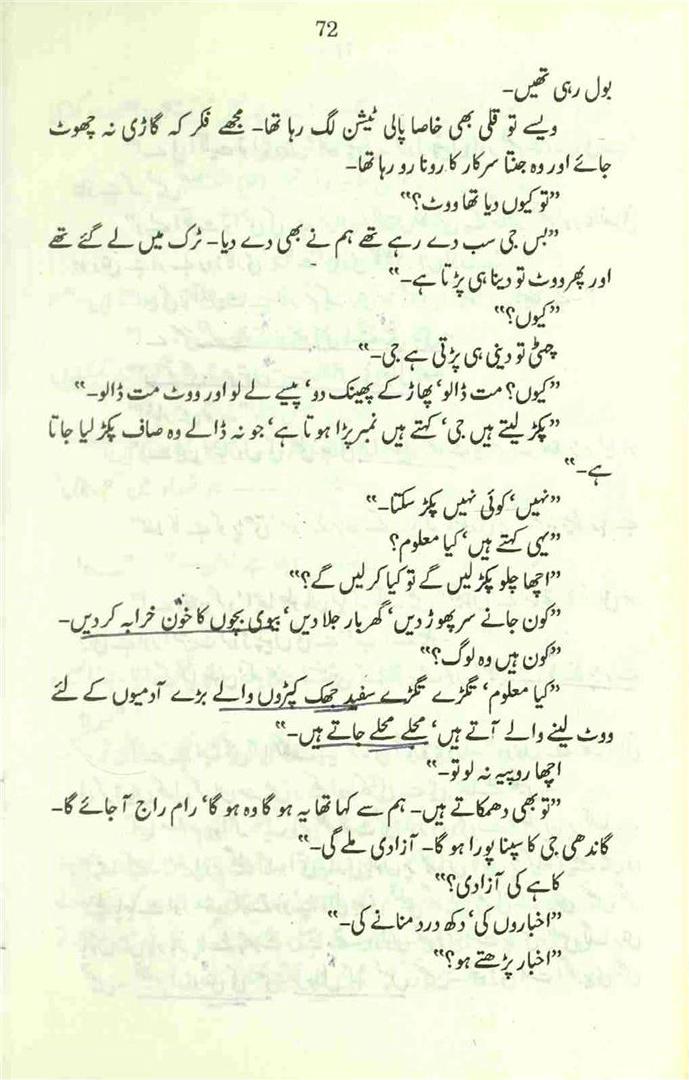 72
بول رہی تھیں۔
ویسے تو قلی بھی خاصا پالی ٹیشن لگ رہا تھا۔ مجھے فکر کہ گاڑی نہ چھوٹ
جائے اور وہ جنتا سرکار کا رونا رو رہا تھا۔
"تو کیوں دیا تھا ووٹ؟"
"بس جی سب دے رہے تھے ہم نے بھی دے دیا۔ ٹرک میں لے گئے تھے
اور پھر ووٹ تو دینا ہی پڑتا ہے۔"
"کیوں؟"
چھٹی تو دینی ہی پڑتی ہے جی۔"
"کیوں؟ مت ڈالو، پھاڑ کے پھینک دو، پیسے لے لو اور ووٹ مت ڈالو۔"
"پکڑ لیتے ہیں جی، کہتے ہیں نمبر پڑا ہوتا ہے، جو نہ ڈالے وہ صاف پکڑ لیا جاتا
ہے۔"
"نہیں، کوئی نہیں پکڑ سکتا۔"
"یہی کہتے ہیں، کیا معلوم؟
"اچھا چلو پکڑ لیں گے تو کیا کر لیں گے؟"
"کون جانے سر پھوڑ دیں، گھر بار جلا دیں، بیوی بچوں کا خون خرابہ کر دیں۔
"کون ہیں وہ لوگ؟"
"کیا معلوم، تگڑے تگڑے سفید جھک کپڑوں والے بڑے آدمیوں کے لئے
ووٹ لینے والے آتے ہیں، محلے محلے جاتے ہیں۔"
اچھا روپیہ نہ لو تو۔"
"تو بھی دھمکاتے ہیں۔ ہم سے کہا تھا یہ ہو گا وہ ہو گا، رام راج آ جائے گا۔
گاندھی جی کا سپنا پورا ہو گا۔ آزادی ملے گی۔"
کاہے کی آزادی؟"
"اخباروں کی، دکھ درد منانے کی۔"
"اخبار پڑھتے ہو؟"